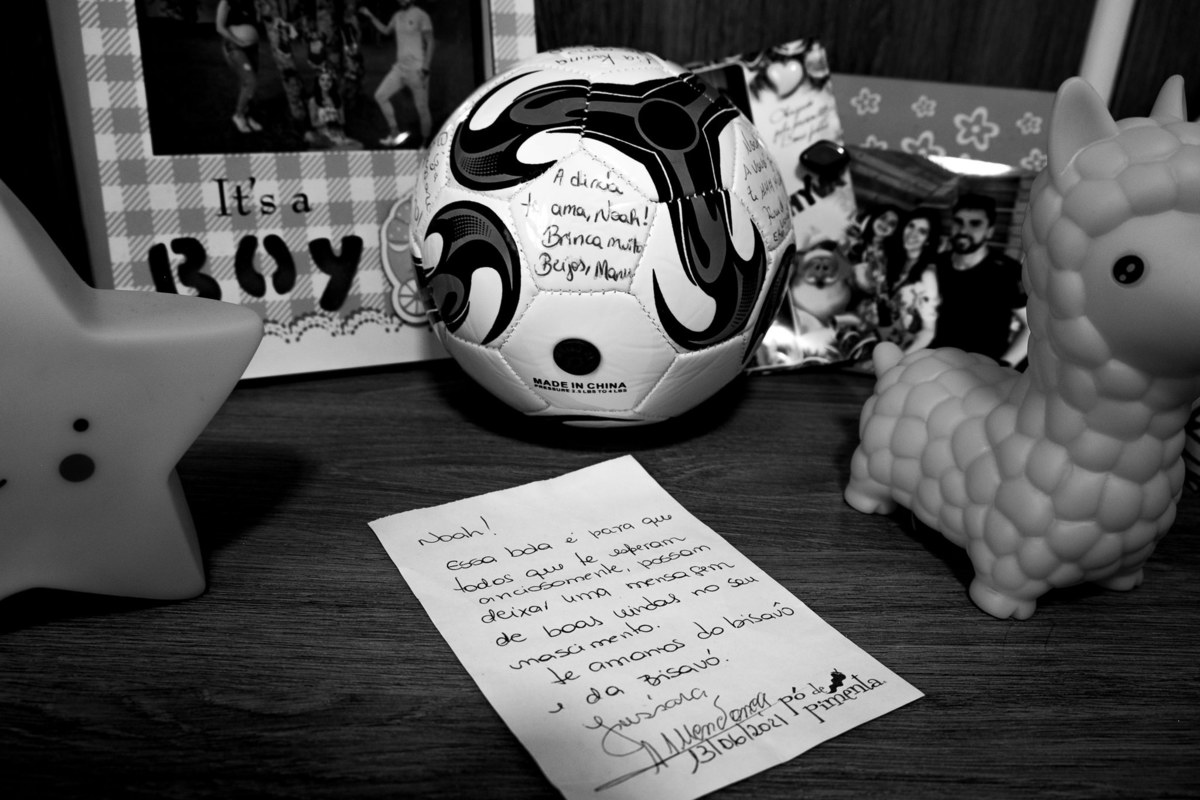 It's a
BOY
A dinda
te ama, Noah!
Brinca muito
Beijos, Manu
MADE IN CHINA
PRESSURE 2.5 LBS TO 4 LBS
Noah!
Essa bola é para que
todos que te esperam
anciosamente, possam
deixar uma mensagem
de boas vindas no seu
nascimento.
te amamos do bisavô
e da Bisavó.
Jussara
Mendonça
13/06/2021
pó de
pimenta